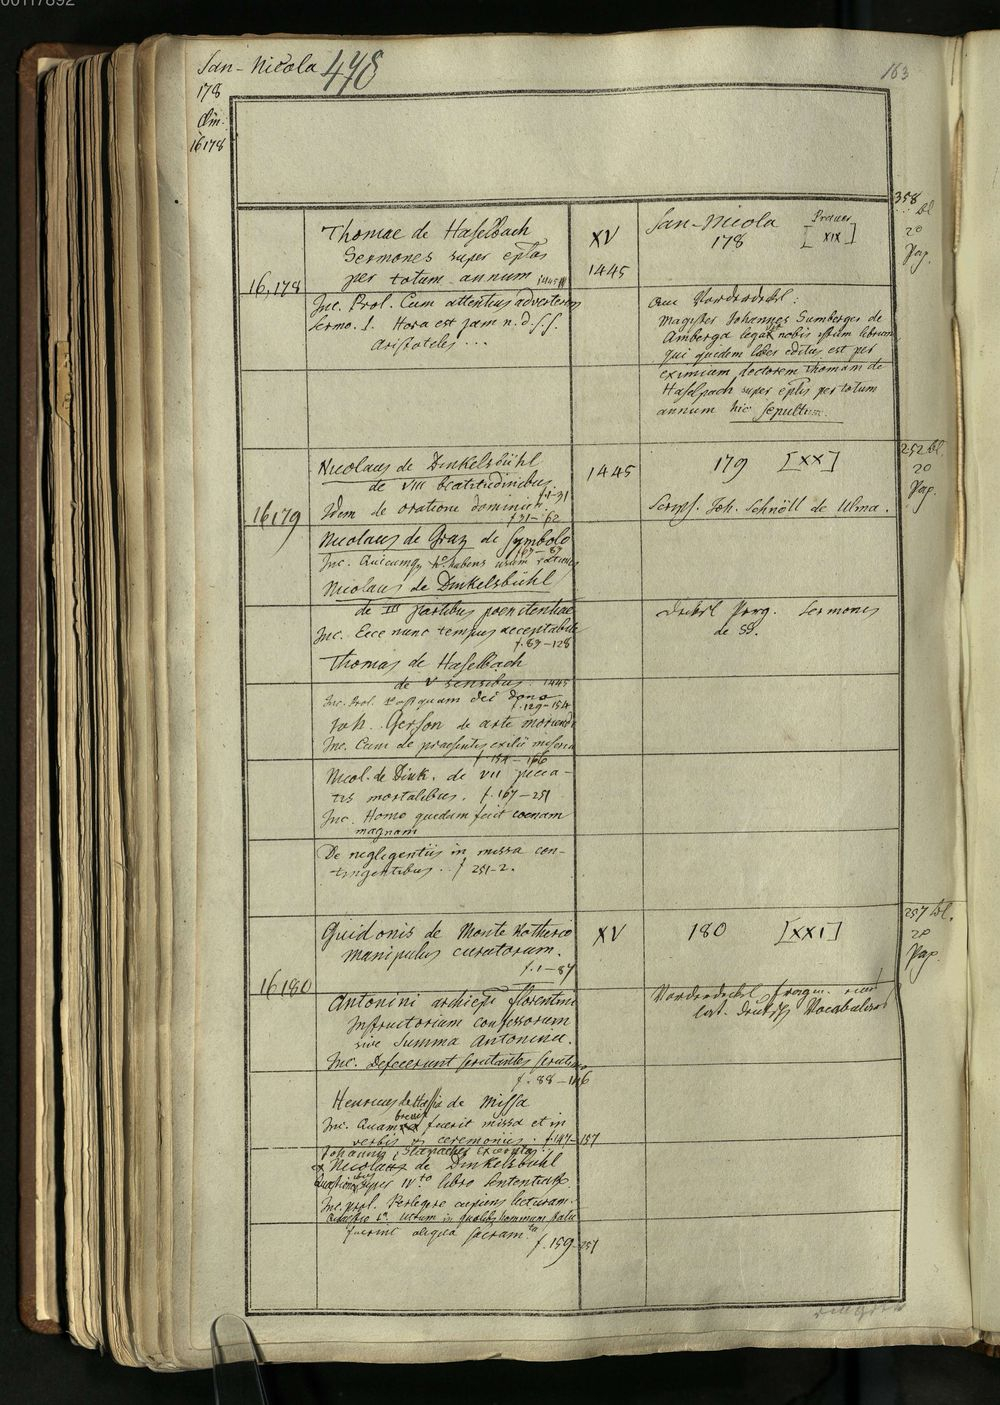 00117892
San-Nicola 478
163
178
Clm.
16178
16,178
Thomae de Haselbach
Sermones super eptas
per totum annum 1445
Inc. Prol. Cum attentius adverterem
Sermo. I. Hora est jam n. d. s. s.
Aristoteles ...
XV
1445
San-Nicola [XIX]
178
Am Vorderdekel:
Magister Johannes Sumberger de
Amberga legat nobis istum librum
qui quidem liber editus est per
eximium doctorem Thomam de
Haselpach super eptis per totum
annum hic sepultum.
358 bl
20
Pap.
16179
Nicolaus de Dinkelsbühl
de VIII beatitudinibus
f. 1-31
Idem de oratione dominica
f. 31-62
Nicolaus de Graz de Symbolo
f. 63-83
Inc. Quicumq habens usum
Nicolaus de Dinkelsbühl
de III partibus poenitentiae
Inc. Ecce nunc tempus acceptabile
f. 83-128
Thomas de Haselbach
de V sensibus. 1445
Inc. Prol. Postquam dei dono
f. 129-154
Joh. Gerson de arte moriendi
Inc. Cum de praesentis exilii miseria
f. 154-166
Nicol. de Dink. de VII pecca-
tis mortalibus. f. 167-251
Inc. Homo quidam fecit coenam
magnam
De neglegentiis in missa con-
tingentibus. f 251-2.
1445
179 [XX]
Script. Joh. Schnöll de Ulma.
Dekel Perg. Sermones
de SS.
252 bl.
20
Pap.
16180
Guidonis de Monte Rotherio
manipulus curatorum.
f. 1-87
Antonini archiepi florentini
Instructorium confessorum
sive Summa Antonina.
Inc. Defecerunt scrutantes scrutinio
f. 88-146
Henricus de Hassia de Missa
Inc. Quam brevis fuerit missa et in
verbis et ceremoniis. f. 147-157
Johannis excerpta
Nicolaus de Dinkelsbühl
Quaestiones super IVto libro Sententiar.
Inc. prol. Perlegere cupiens lecturam.
Quaestio 1a. Utrum in quolibet hominum statu
fuerint aliqua sacramta
f. 159-257
XV
180 [XXI]
Vorderdekel, fragm. eines
lat. deutsch Vocabulars
257 bl.
20
Pap.